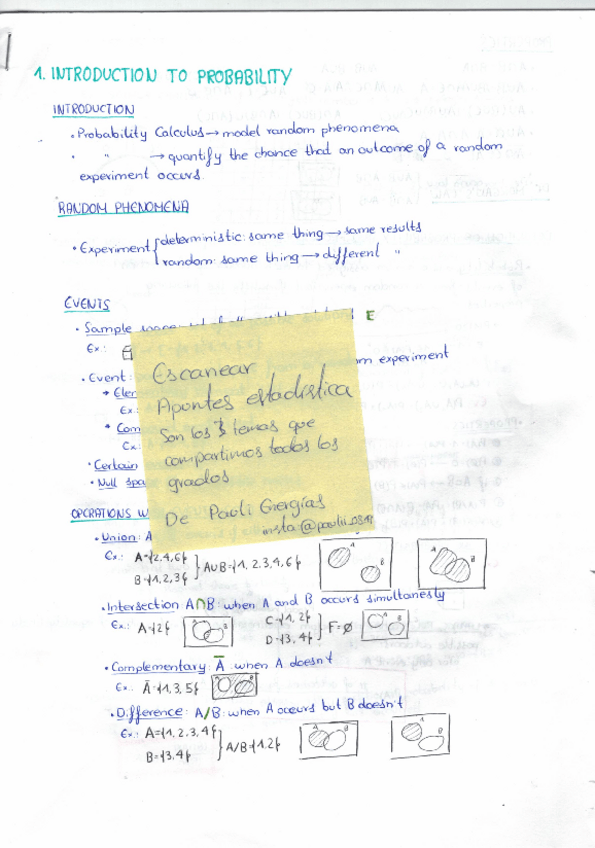 1. INTRODUCTION TO PROBABILITY
INTRODUCTION
• Probability Calculus → model random phenomena
• " → quantify the chance that an outcome of a random
experiment occurs.
RANDOM PHENOMENA
• Experiment { deterministic: same thing → same results
random: same thing → different "
EVENTS
• Sample E
Ex.:
• Event: experiment
→ Elem
Ex.
→ Com
Ex.
• Certain
• Null spa
Escanear
Apuntes estadistica
Son los 3 temas que
compartimos todos los
grados
De Pauli
insta:
OPERATIONS W
• Union: A
Ex.: A={2,4,6} } A∪B={1,2,3,4,6} A B A B
B={1,2,3}
• Intersection A∩B: when A and B occurs simultanesty
Ex.: A={2} C={1,2} } F=∅
D={3,4}
• Complementary: Ā: when A doesn't
Ex.: Ā={1,3,5}
• Difference: A/B: when A occurs but B doesn't
Ex.: A={1,2,3,4} } A/B={1,2} A B A B
B={3,4}